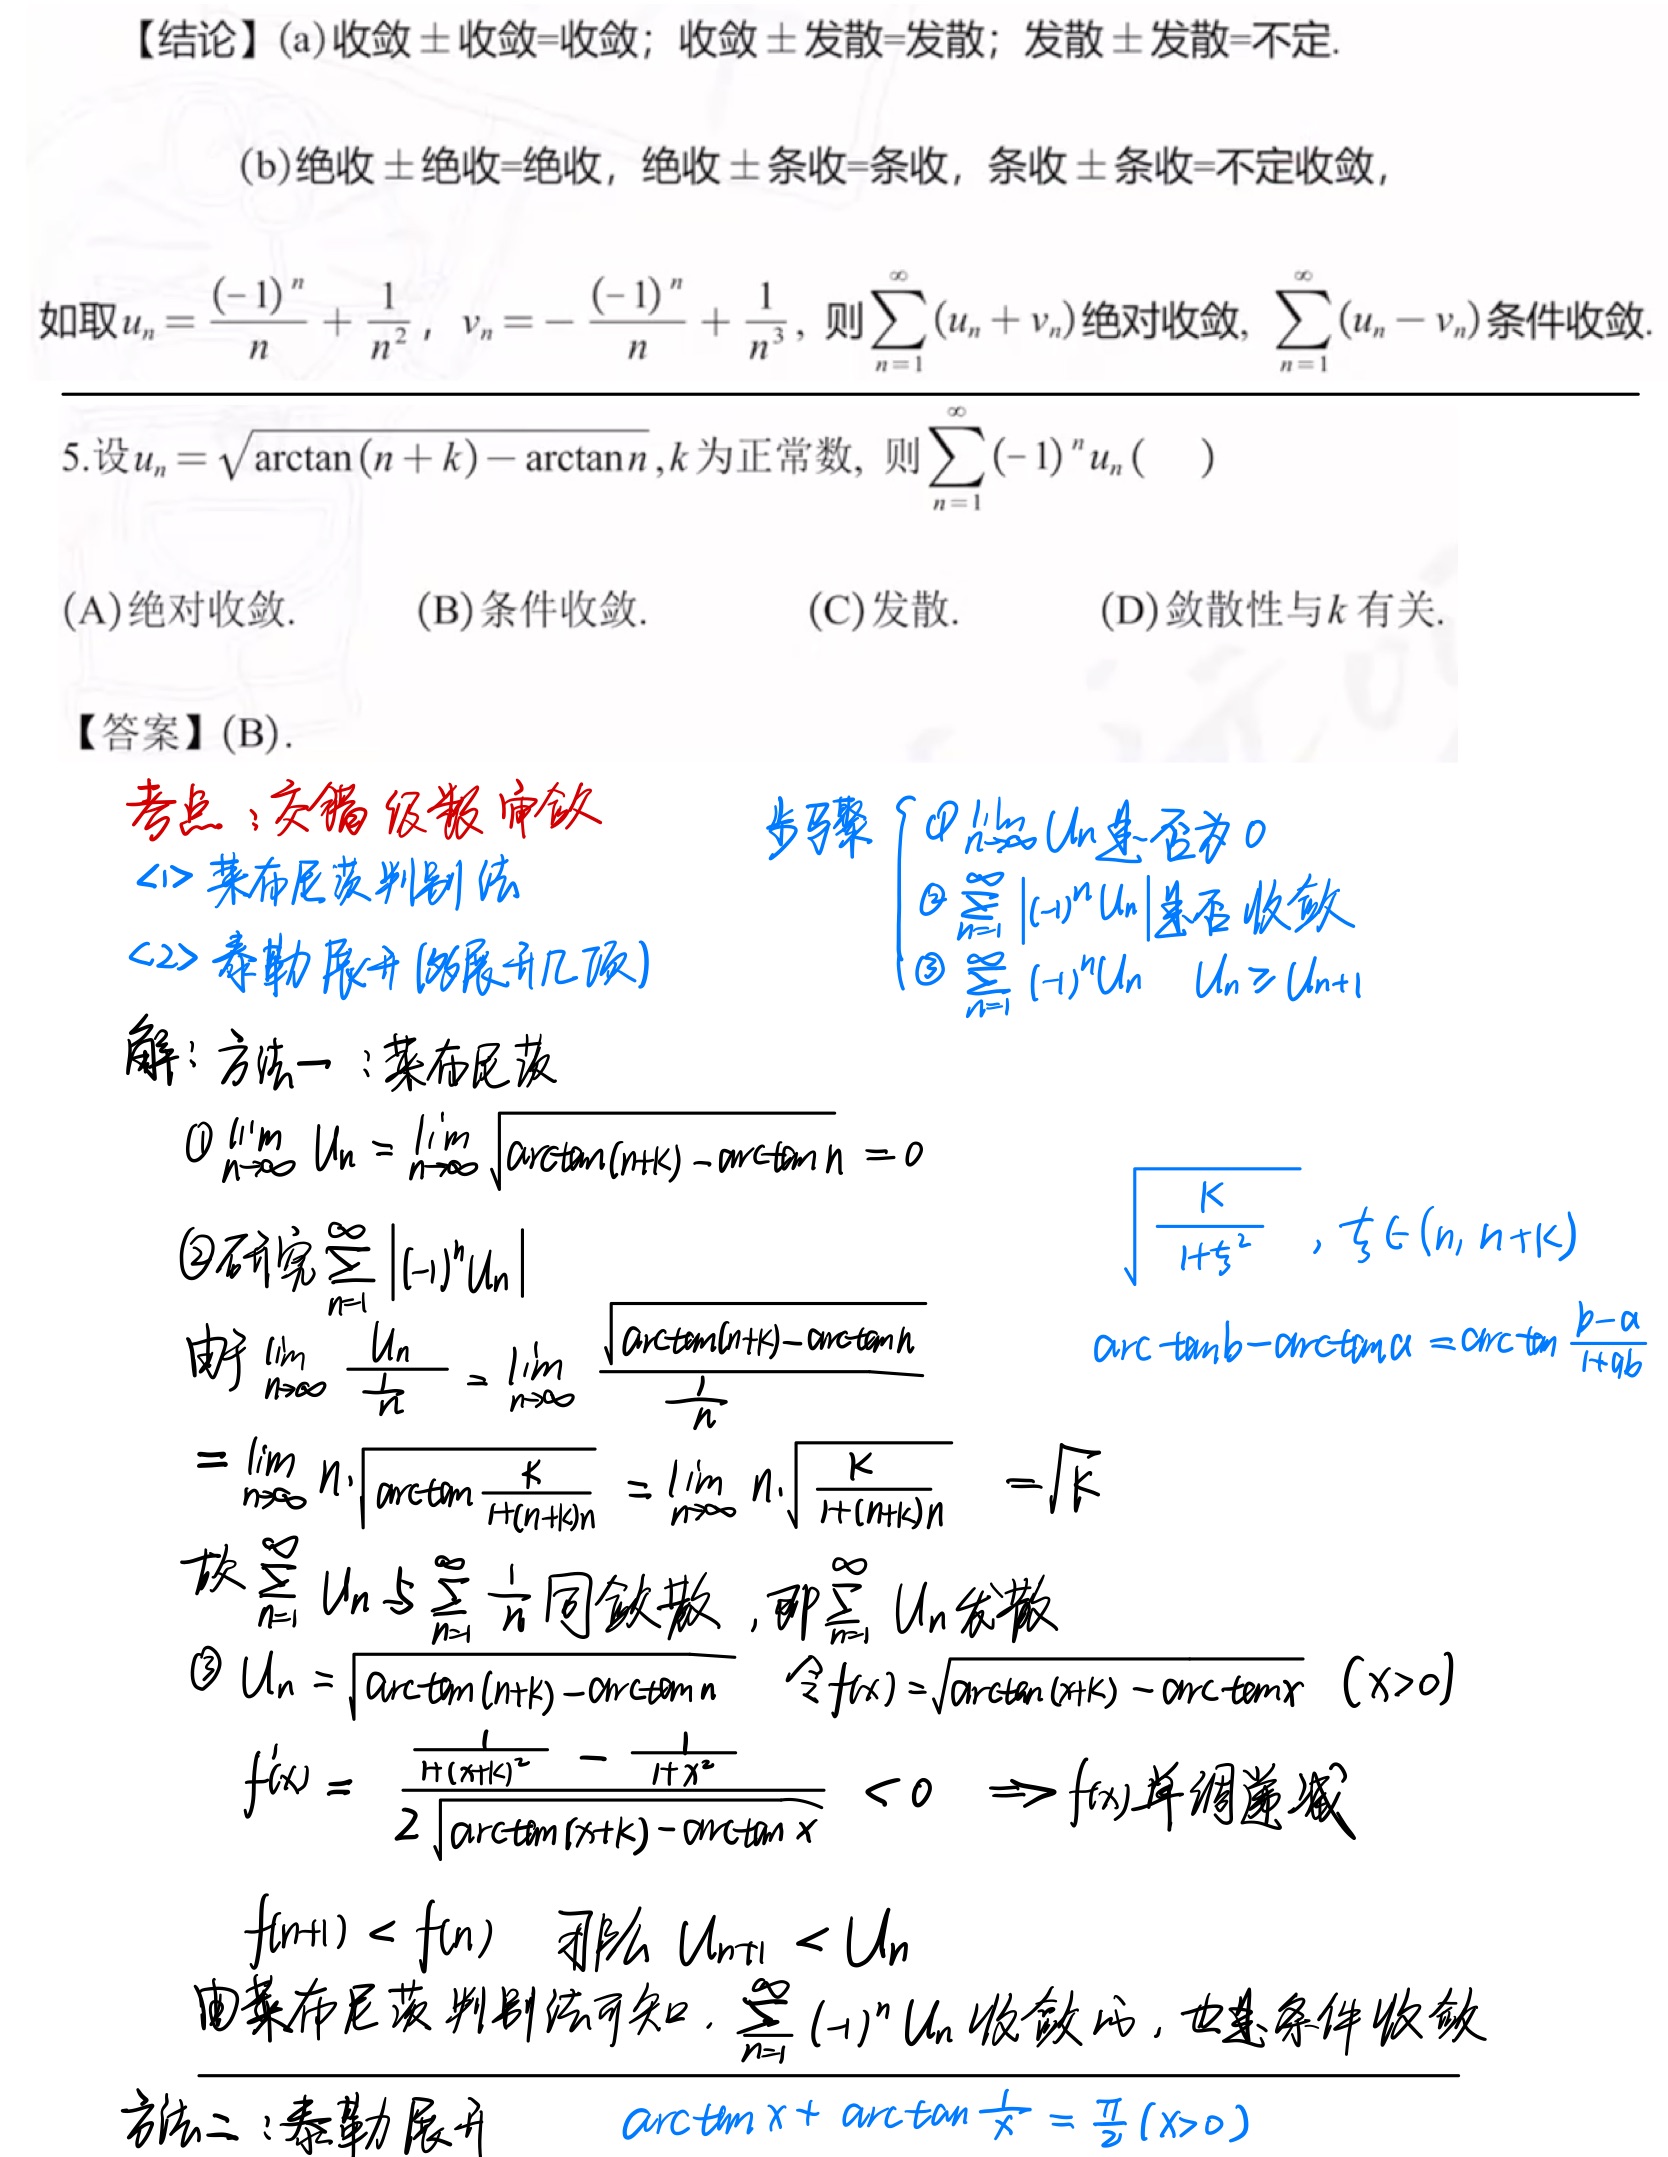 【结论】(a)收敛±收敛=收敛；收敛±发散=发散；发散±发散=不定.
(b)绝收±绝收=绝收，绝收±条收=条收，条收±条收=不定收敛，
如取 $u_n = \frac{(-1)^n}{n} + \frac{1}{n^2}$，$v_n = -\frac{(-1)^n}{n} + \frac{1}{n^3}$，则 $\sum_{n=1}^{\infty}(u_n + v_n)$ 绝对收敛，$\sum_{n=1}^{\infty}(u_n - v_n)$ 条件收敛.
5.设 $u_n = \sqrt{\arctan(n+k) - \arctan n}$, k 为正常数，则 $\sum_{n=1}^{\infty}(-1)^n u_n$ (　)
(A)绝对收敛.　(B)条件收敛.　(C)发散.　(D)敛散性与 k 有关.
【答案】(B).
考点：交错级数审敛
<1> 莱布尼茨判别法
<2> 泰勒展开(多展开几项)
步骤
① $\lim_{n\to\infty} U_n$ 是否为 0
② $\sum_{n=1}^{\infty} |(-1)^n U_n|$ 是否收敛
③ $\sum_{n=1}^{\infty} (-1)^n U_n$　$U_n \geq U_{n+1}$
解：方法一：莱布尼茨
① $\lim_{n\to\infty} U_n = \lim_{n\to\infty} \sqrt{\arctan(n+k) - \arctan n} = 0$
② 研究 $\sum_{n=1}^{\infty} |(-1)^n U_n|$
$\sqrt{\frac{k}{1+\xi^2}}$，$\xi \in (n, n+k)$
由于 $\lim_{n\to\infty} \frac{U_n}{\frac{1}{n}} = \lim_{n\to\infty} \frac{\sqrt{\arctan(n+k) - \arctan n}}{\frac{1}{n}}$
$\arctan b - \arctan a = \arctan \frac{b-a}{1+ab}$
$= \lim_{n\to\infty} n \cdot \sqrt{\arctan \frac{k}{1+(n+k)n}} = \lim_{n\to\infty} n \cdot \sqrt{\frac{k}{1+(n+k)n}} = \sqrt{k}$
故 $\sum_{n=1}^{\infty} U_n$ 与 $\sum_{n=1}^{\infty} \frac{1}{n}$ 同敛散，即 $\sum_{n=1}^{\infty} U_n$ 发散
③ $U_n = \sqrt{\arctan(n+k) - \arctan n}$　令 $f(x) = \sqrt{\arctan(x+k) - \arctan x}$ (x>0)
$f'(x) = \frac{\frac{1}{1+(x+k)^2} - \frac{1}{1+x^2}}{2\sqrt{\arctan(x+k) - \arctan x}} < 0$ ⟹ f(x)单调递减
f(n+1) < f(n)　那么 $U_{n+1} < U_n$
由莱布尼茨判别法可知. $\sum_{n=1}^{\infty} (-1)^n U_n$ 收敛的，也是条件收敛
方法二：泰勒展开　$\arctan x + \arctan \frac{1}{x} = \frac{\pi}{2}$ (x>0)